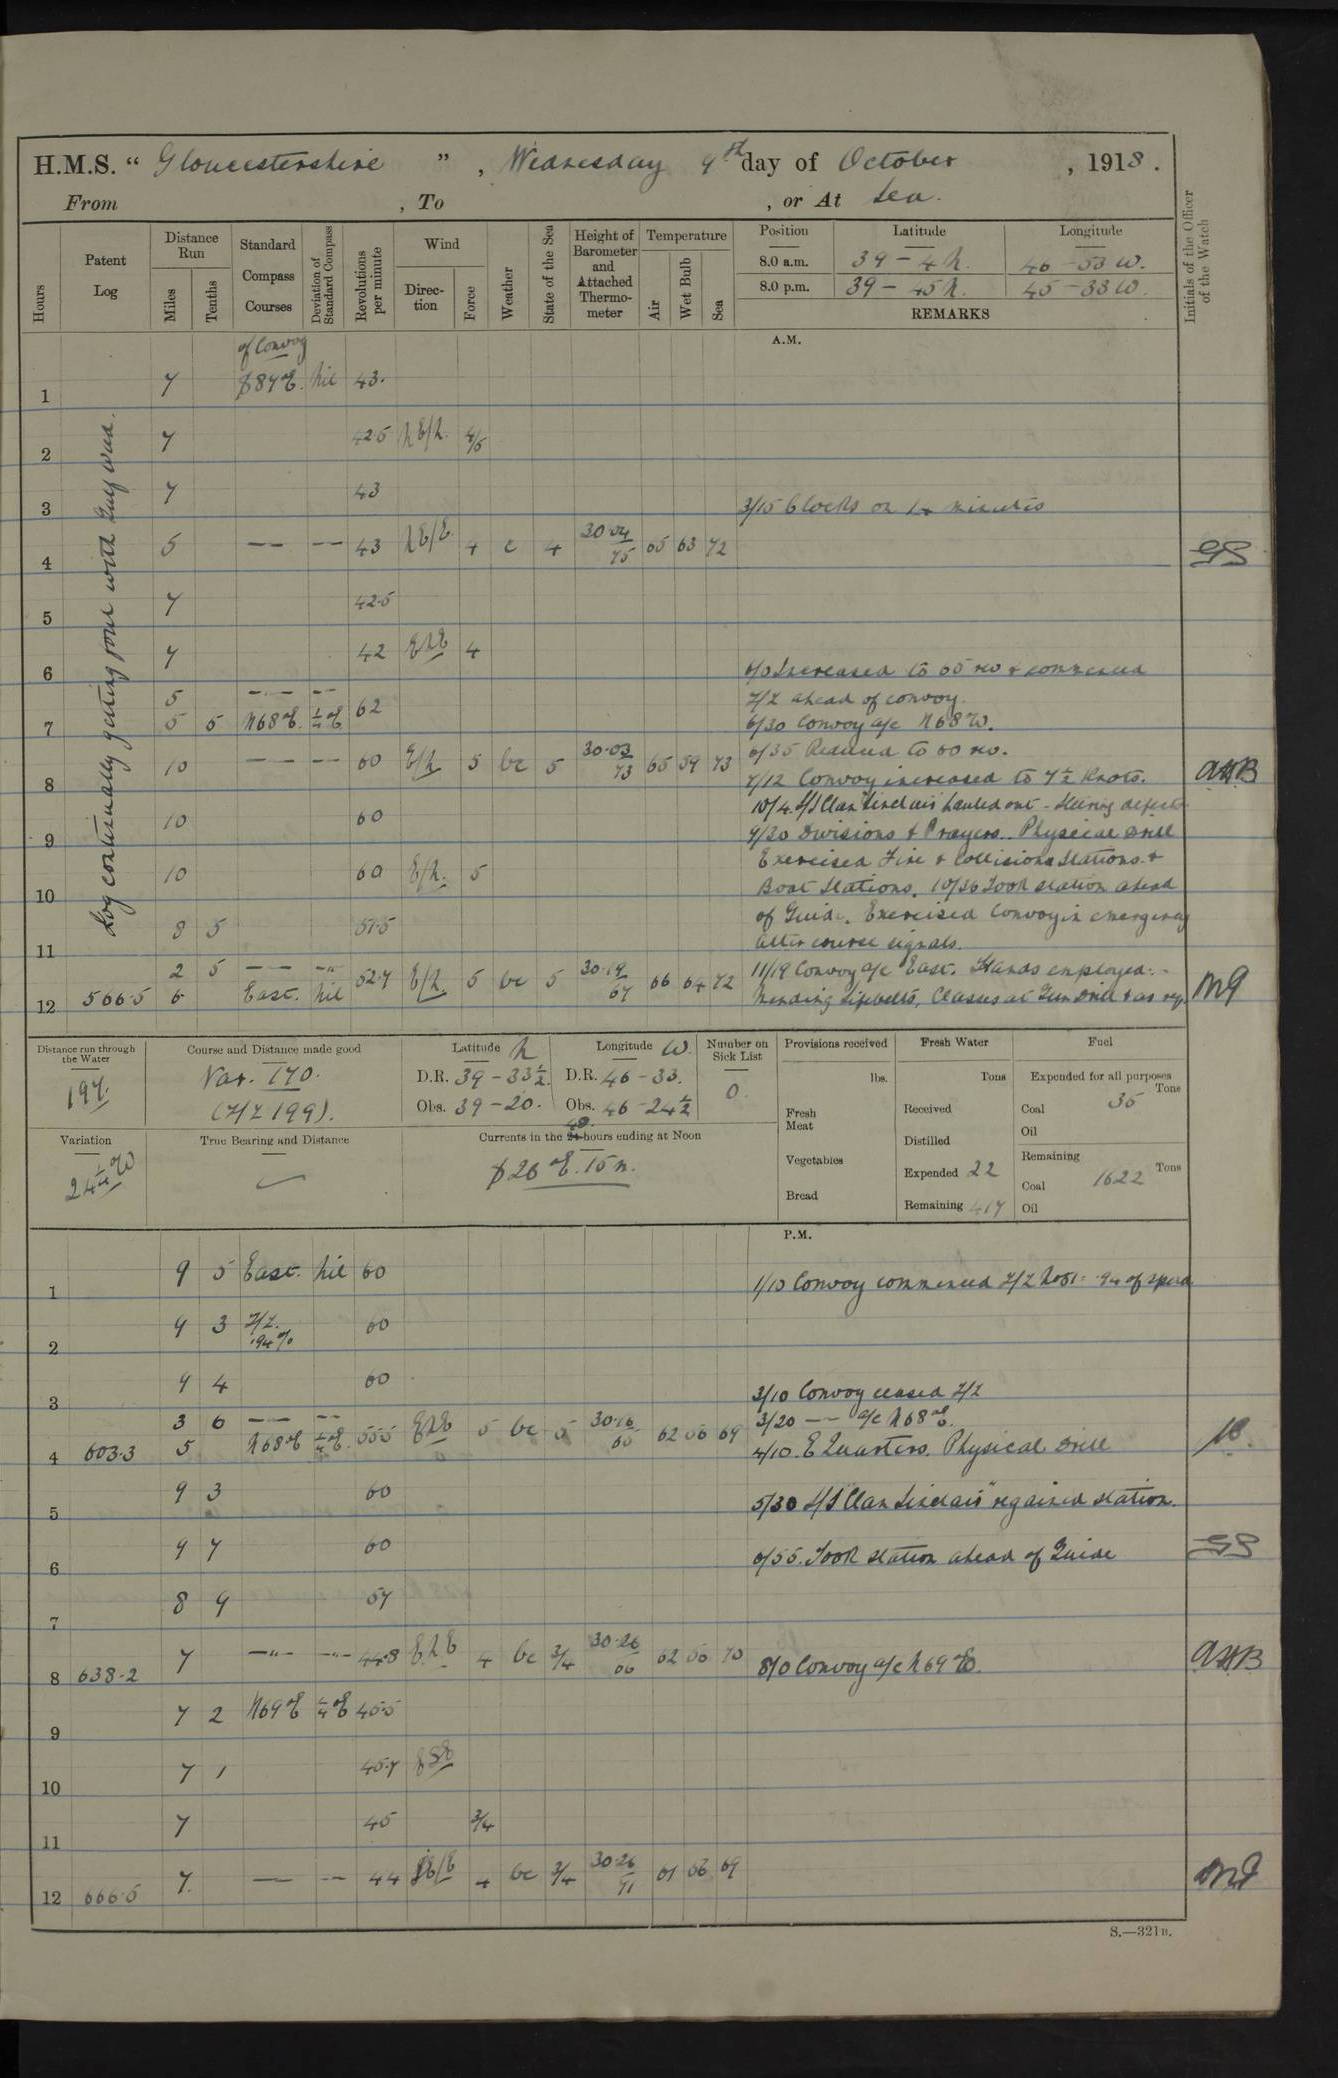 H.M.S. " Gloucestershire " , Wednesday 9th day of October , 1918 .
From , To , or At Sea.
Hours
Patent Log
Distance Run
Miles
Tenths
Standard Compass Courses
Deviation of Standard Compass
Revolutions per minute
Wind
Direction
Force
Weather
State of the Sea
Height of Barometer and Attached Thermometer
Temperature
Air
Wet Bulb
Sea
Position Latitude Longitude
8.0 a.m. 39 - 4 N. 46 - 53 W.
8.0 p.m. 39 - 45 N. 45 - 33 W.
REMARKS
Initials of the Officer of the Watch
A.M.
Log continually getting foul with Gulf weed.
of Convoy
1 7 S 87° E. Nil 43.
2 7 42.5 NE/N. 4/5
3 7 43 3/15 Clocks on 14 minutes
4 5 — — 43 NE/E 4 c 4 30.04 75 65 63 72 GS
5 7 42.5
6 7 42 ENE 4
6/0 Increased to 65 rev + commenced
5 — —
Z/Z ahead of convoy.
7 5 5 N68°E. ½°E 62 6/30 Convoy a/c N68°W.
6/35 Reduced to 60 rev.
8 10 — — 60 E/N 5 bc 5 30.03 73 65 59 73 7/12 Convoy increased to 7½ Knots. AHB
10/4. S/S Clan Sinclair hauled out - Steering defects
9 10 60 9/20 Divisions + Prayers. Physical Drill
Exercised Fire + Collision Stations. +
10 10 60 E/N. 5 Boat Stations. 10/36 Took station ahead
of Guide. Exercised Convoy in emergency
11 8 5 51.5 alter course signals.
2 5 — — 11/19 Convoy a/c East. Hands employed:-
12 566.5 6 East. Nil 52.7 E/N. 5 bc 5 30.19 67 66 64 72 Mending lifebelts, Classes at Gun Drill + as req.
Distance run through the Water
197.
Course and Distance made good
Nav. 170.
(Z/Z 199).
Latitude N
D.R. 39 - 33½.
Obs. 39 - 20.
Longitude W.
D.R. 46 - 33.
Obs. 46 - 24½
Number on Sick List
0.
Provisions received
lbs.
Fresh Meat
Vegetables
Bread
Fresh Water
Tons
Received
Distilled
Expended 22
Remaining 417
Fuel
Expended for all purposes
Tons
Coal 35
Oil
Remaining
Tons
Coal 1622
Oil
Variation
24¼°W
True Bearing and Distance
Currents in the 24 hours ending at Noon
S 26° E. 15 m.
P.M.
1 9 5 East. Nil 60 1/10 Convoy commenced Z/Z No51: .94 of speed
2 9 3 Z/Z. .94% 60
3 9 4 60 3/10 Convoy ceased Z/Z
3 6 — — 3/20 — — a/c N68°E.
4 603.3 5 N68°E 55.5 ENE 5 bc 5 30.16 65 62 56 69 4/10. E Quarters. Physical Drill
5 9 3 60 5/30 S/S "Clan Sinclair" regained station.
6 9 7 60 6/55. Took station ahead of Guide GS
7 8 9 57
8 638.2 7 — " — — " — 44.8 E.N.E 4 bc 3/4 30.26 66 62 56 70 8/0 Convoy a/c N69°E. AHB
9 7 2 N69°E 45.5
10 7 1 45.7
11 7 45 3/4
12 666.5 7. — — 44 4 bc 3/4 30.26 71 61 56 69
S.—321B.